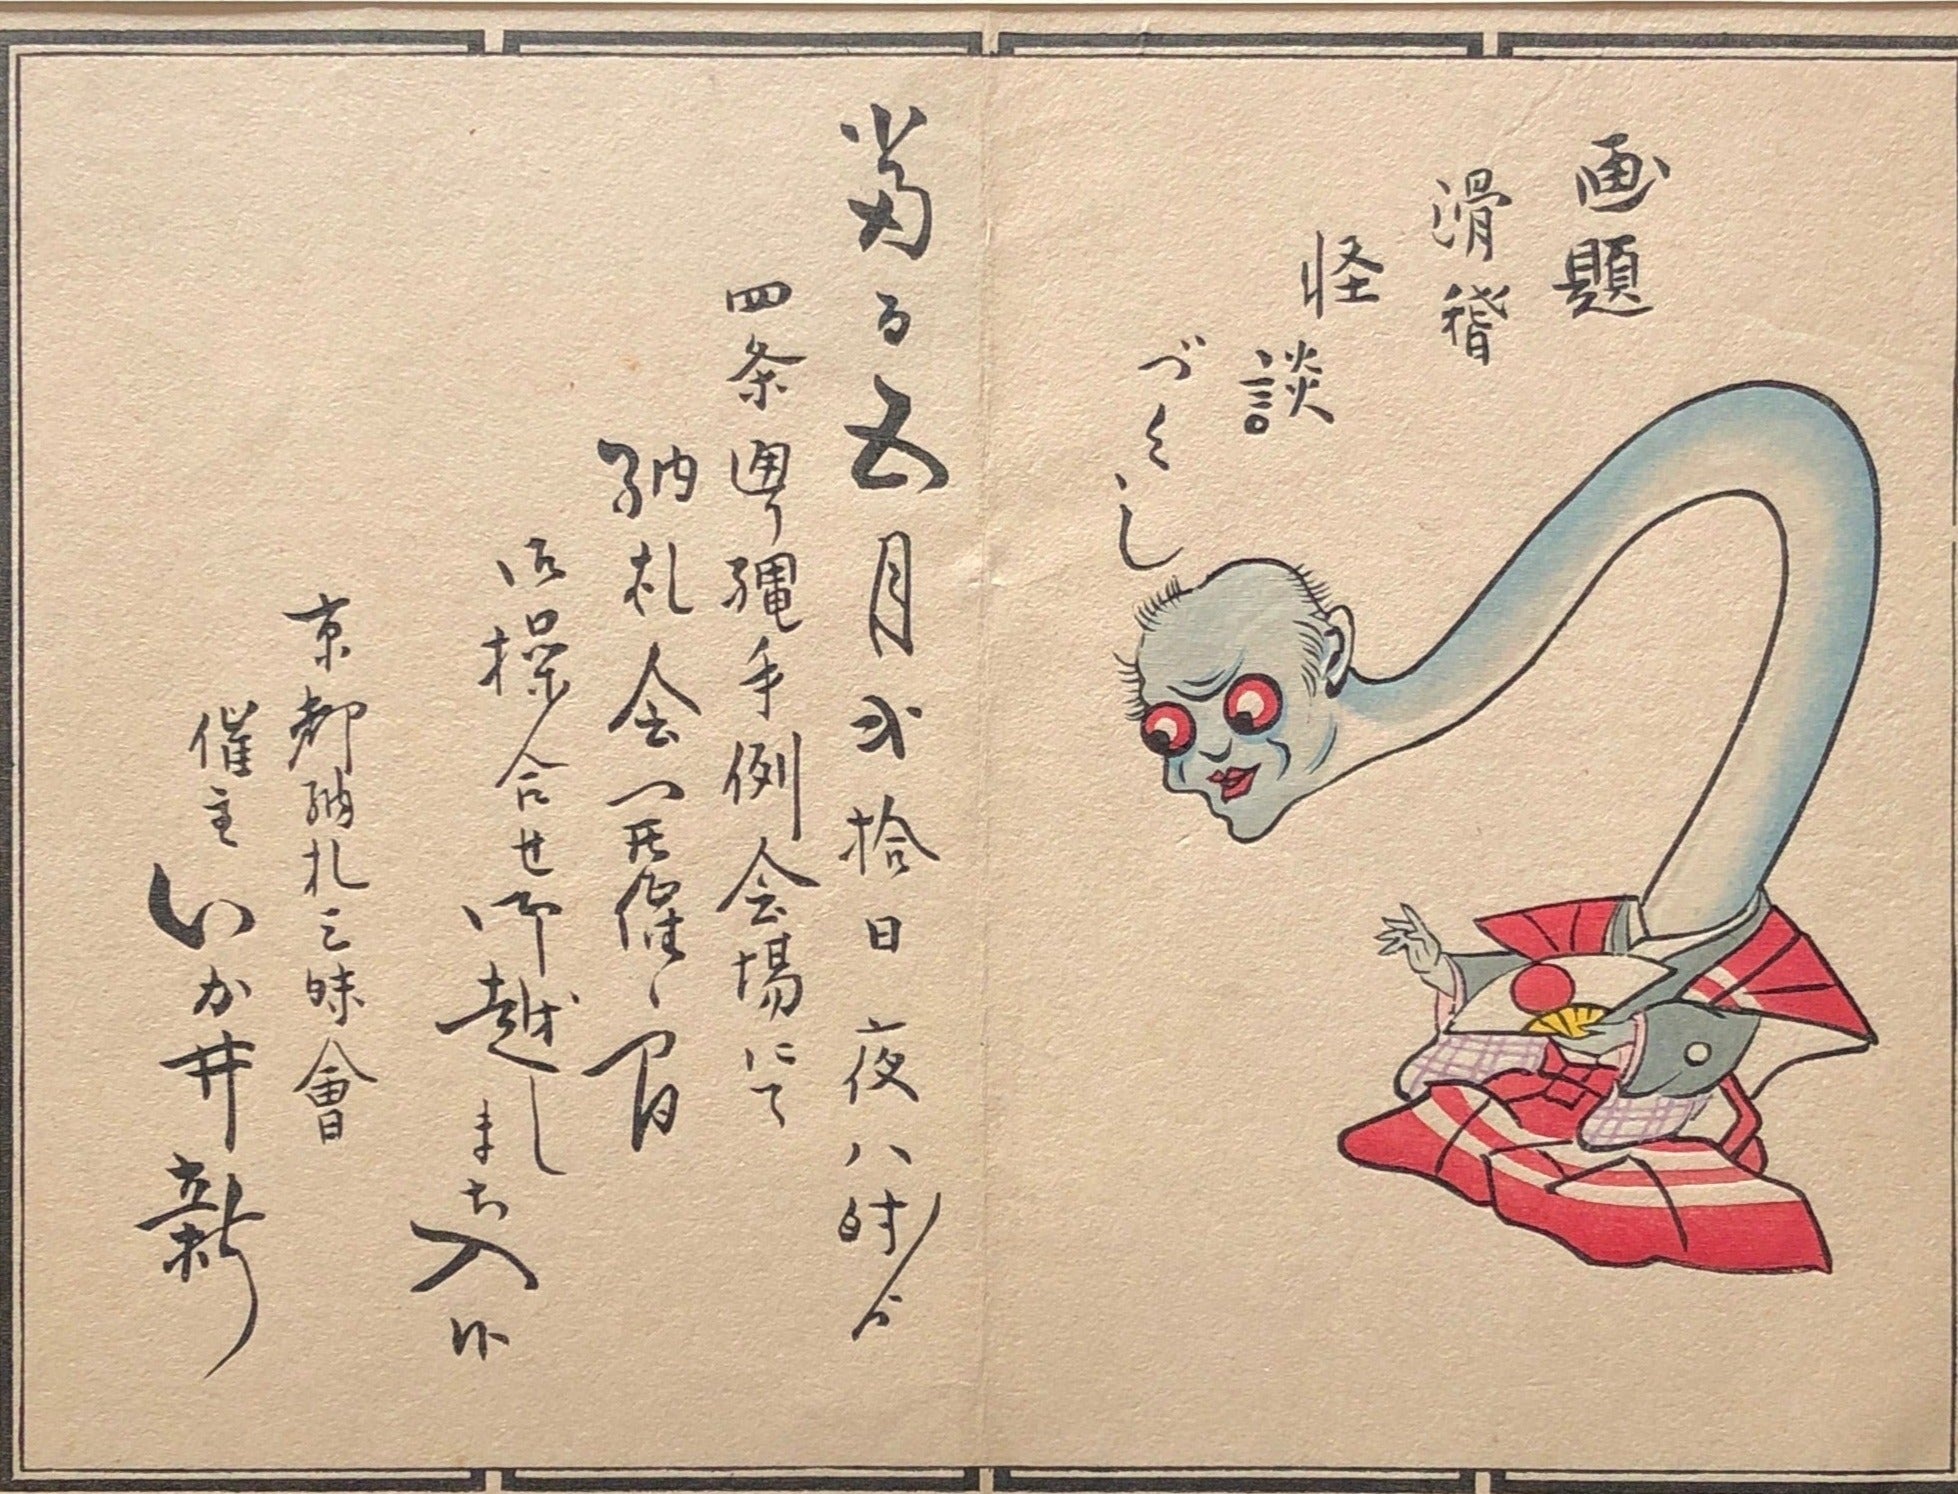 画題
滑稽
怪談
づくし
當る五月弐拾日夜八時ゟ
四条通り縄手例会場にて
納札会開催候間
御操合せ御越しまち入候
京都納札三味會
催主いか井新